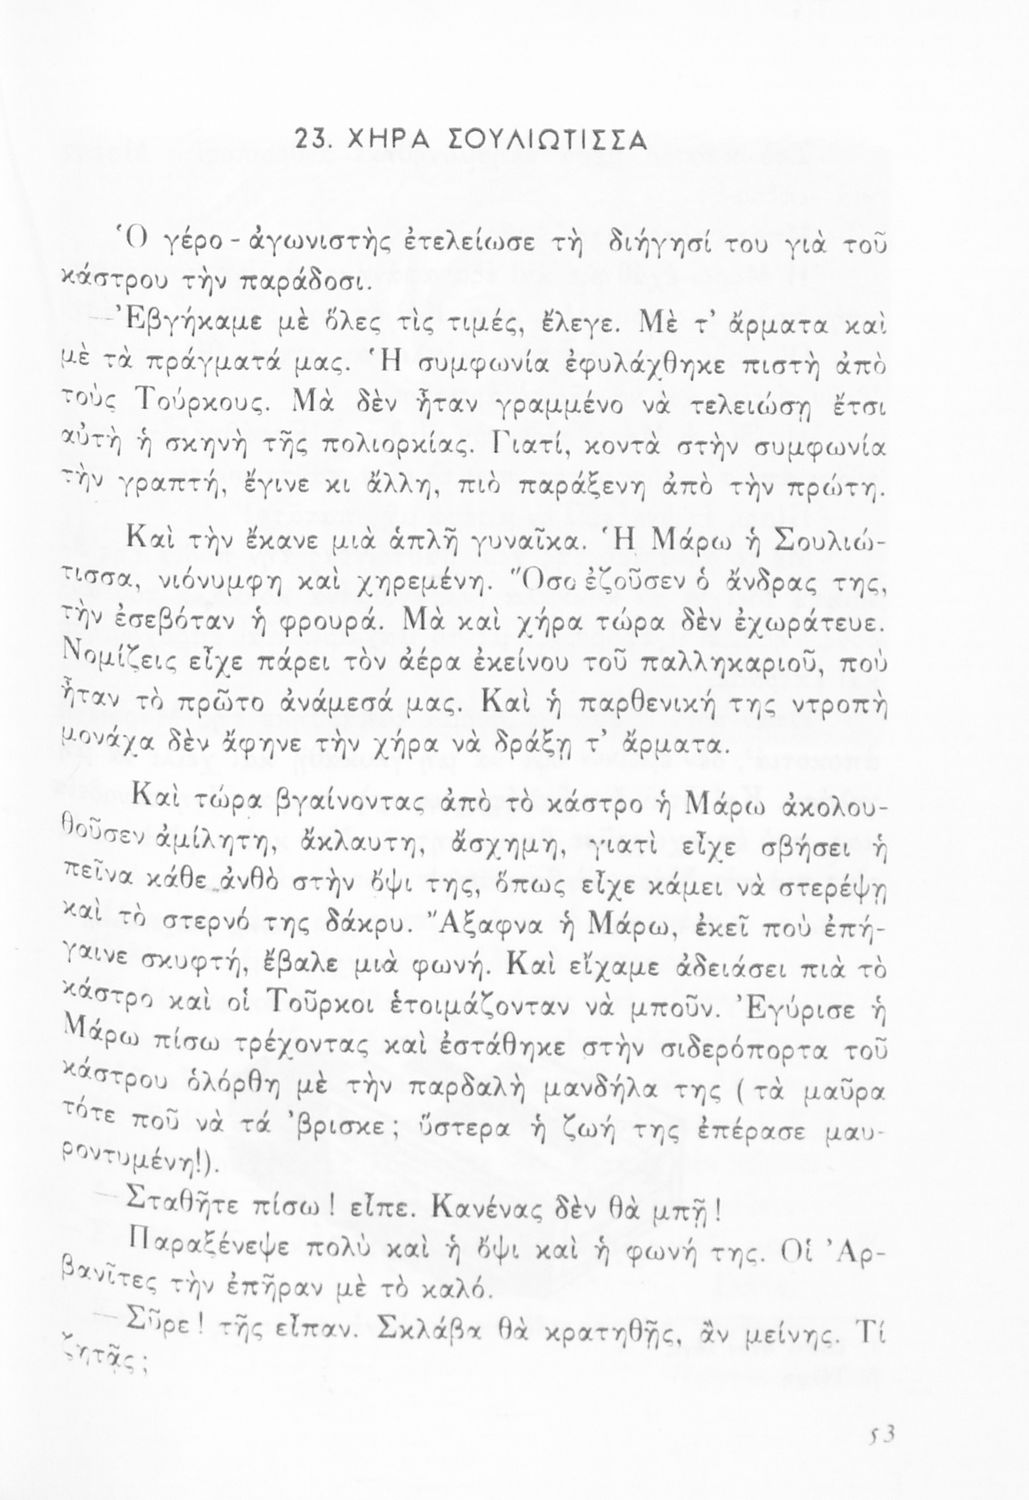 23. ΧΗΡΑ ΣΟΥΛΙΩΤΙΣΣΑ
Ὁ γέρο - ἀγωνιστὴς ἐτελείωσε τὴ διήγησί του γιὰ τοῦ
κάστρου τὴν παράδοσι.
—Ἐβγήκαμε μὲ ὅλες τὶς τιμές, ἔλεγε. Μὲ τ’ ἄρματα καὶ
μὲ τὰ πράγματά μας. Ἡ συμφωνία ἐφυλάχθηκε πιστὴ ἀπὸ
τοὺς Τούρκους. Μὰ δὲν ἦταν γραμμένο νὰ τελειώσῃ ἔτσι
αὐτὴ ἡ σκηνὴ τῆς πολιορκίας. Γιατί, κοντὰ στὴν συμφωνία
τὴν γραπτή, ἔγινε κι ἄλλη, πιὸ παράξενη ἀπὸ τὴν πρώτη.
Καὶ τὴν ἔκανε μιὰ ἁπλῆ γυναῖκα. Ἡ Μάρω ἡ Σουλιώ-
τισσα, νιόνυμφη καὶ χηρεμένη. Ὅσο ἐζοῦσεν ὁ ἄνδρας της,
τὴν ἐσεβόταν ἡ φρουρά. Μὰ καὶ χήρα τώρα δὲν ἐχωράτευε.
Νομίζεις εἶχε πάρει τὸν ἀέρα ἐκείνου τοῦ παλληκαριοῦ, ποὺ
ἦταν τὸ πρῶτο ἀνάμεσά μας. Καὶ ἡ παρθενική της ντροπὴ
μονάχα δὲν ἄφηνε τὴν χήρα νὰ δράξῃ τ’ ἄρματα.
Καὶ τώρα βγαίνοντας ἀπὸ τὸ κάστρο ἡ Μάρω ἀκολου-
θοῦσεν ἀμίλητη, ἄκλαυτη, ἄσχημη, γιατὶ εἶχε σβήσει ἡ
πεῖνα κάθε ἀνθὸ στὴν ὄψι της, ὅπως εἶχε κάμει νὰ στερέψῃ
καὶ τὸ στερνό της δάκρυ. Ἄξαφνα ἡ Μάρω, ἐκεῖ ποὺ ἐπή-
γαινε σκυφτή, ἔβαλε μιὰ φωνή. Καὶ εἴχαμε ἀδειάσει πιὰ τὸ
κάστρο καὶ οἱ Τοῦρκοι ἑτοιμάζονταν νὰ μποῦν. Ἐγύρισε ἡ
Μάρω πίσω τρέχοντας καὶ ἐστάθηκε στὴν σιδερόπορτα τοῦ
κάστρου ὁλόρθη μὲ τὴν παρδαλὴ μανδήλα της ( τὰ μαῦρα
τότε ποῦ νὰ τά ’βρισκε ; ὕστερα ἡ ζωή της ἐπέρασε μαυ-
ροντυμένη!).
—Σταθῆτε πίσω ! εἶπε. Κανένας δὲν θὰ μπῇ !
Παραξένεψε πολὺ καὶ ἡ ὄψι καὶ ἡ φωνή της. Οἱ Ἀρ-
βανῖτες τὴν ἐπῆραν μὲ τὸ καλό.
—Σῦρε ! τῆς εἶπαν. Σκλάβα θὰ κρατηθῇς, ἂν μείνης. Τί
ζητᾶς ;
53